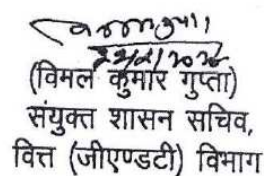 (विमल कुमार गुप्ता)
संयुक्त शासन सचिव,
वित्त (जीएण्डटी) विभाग